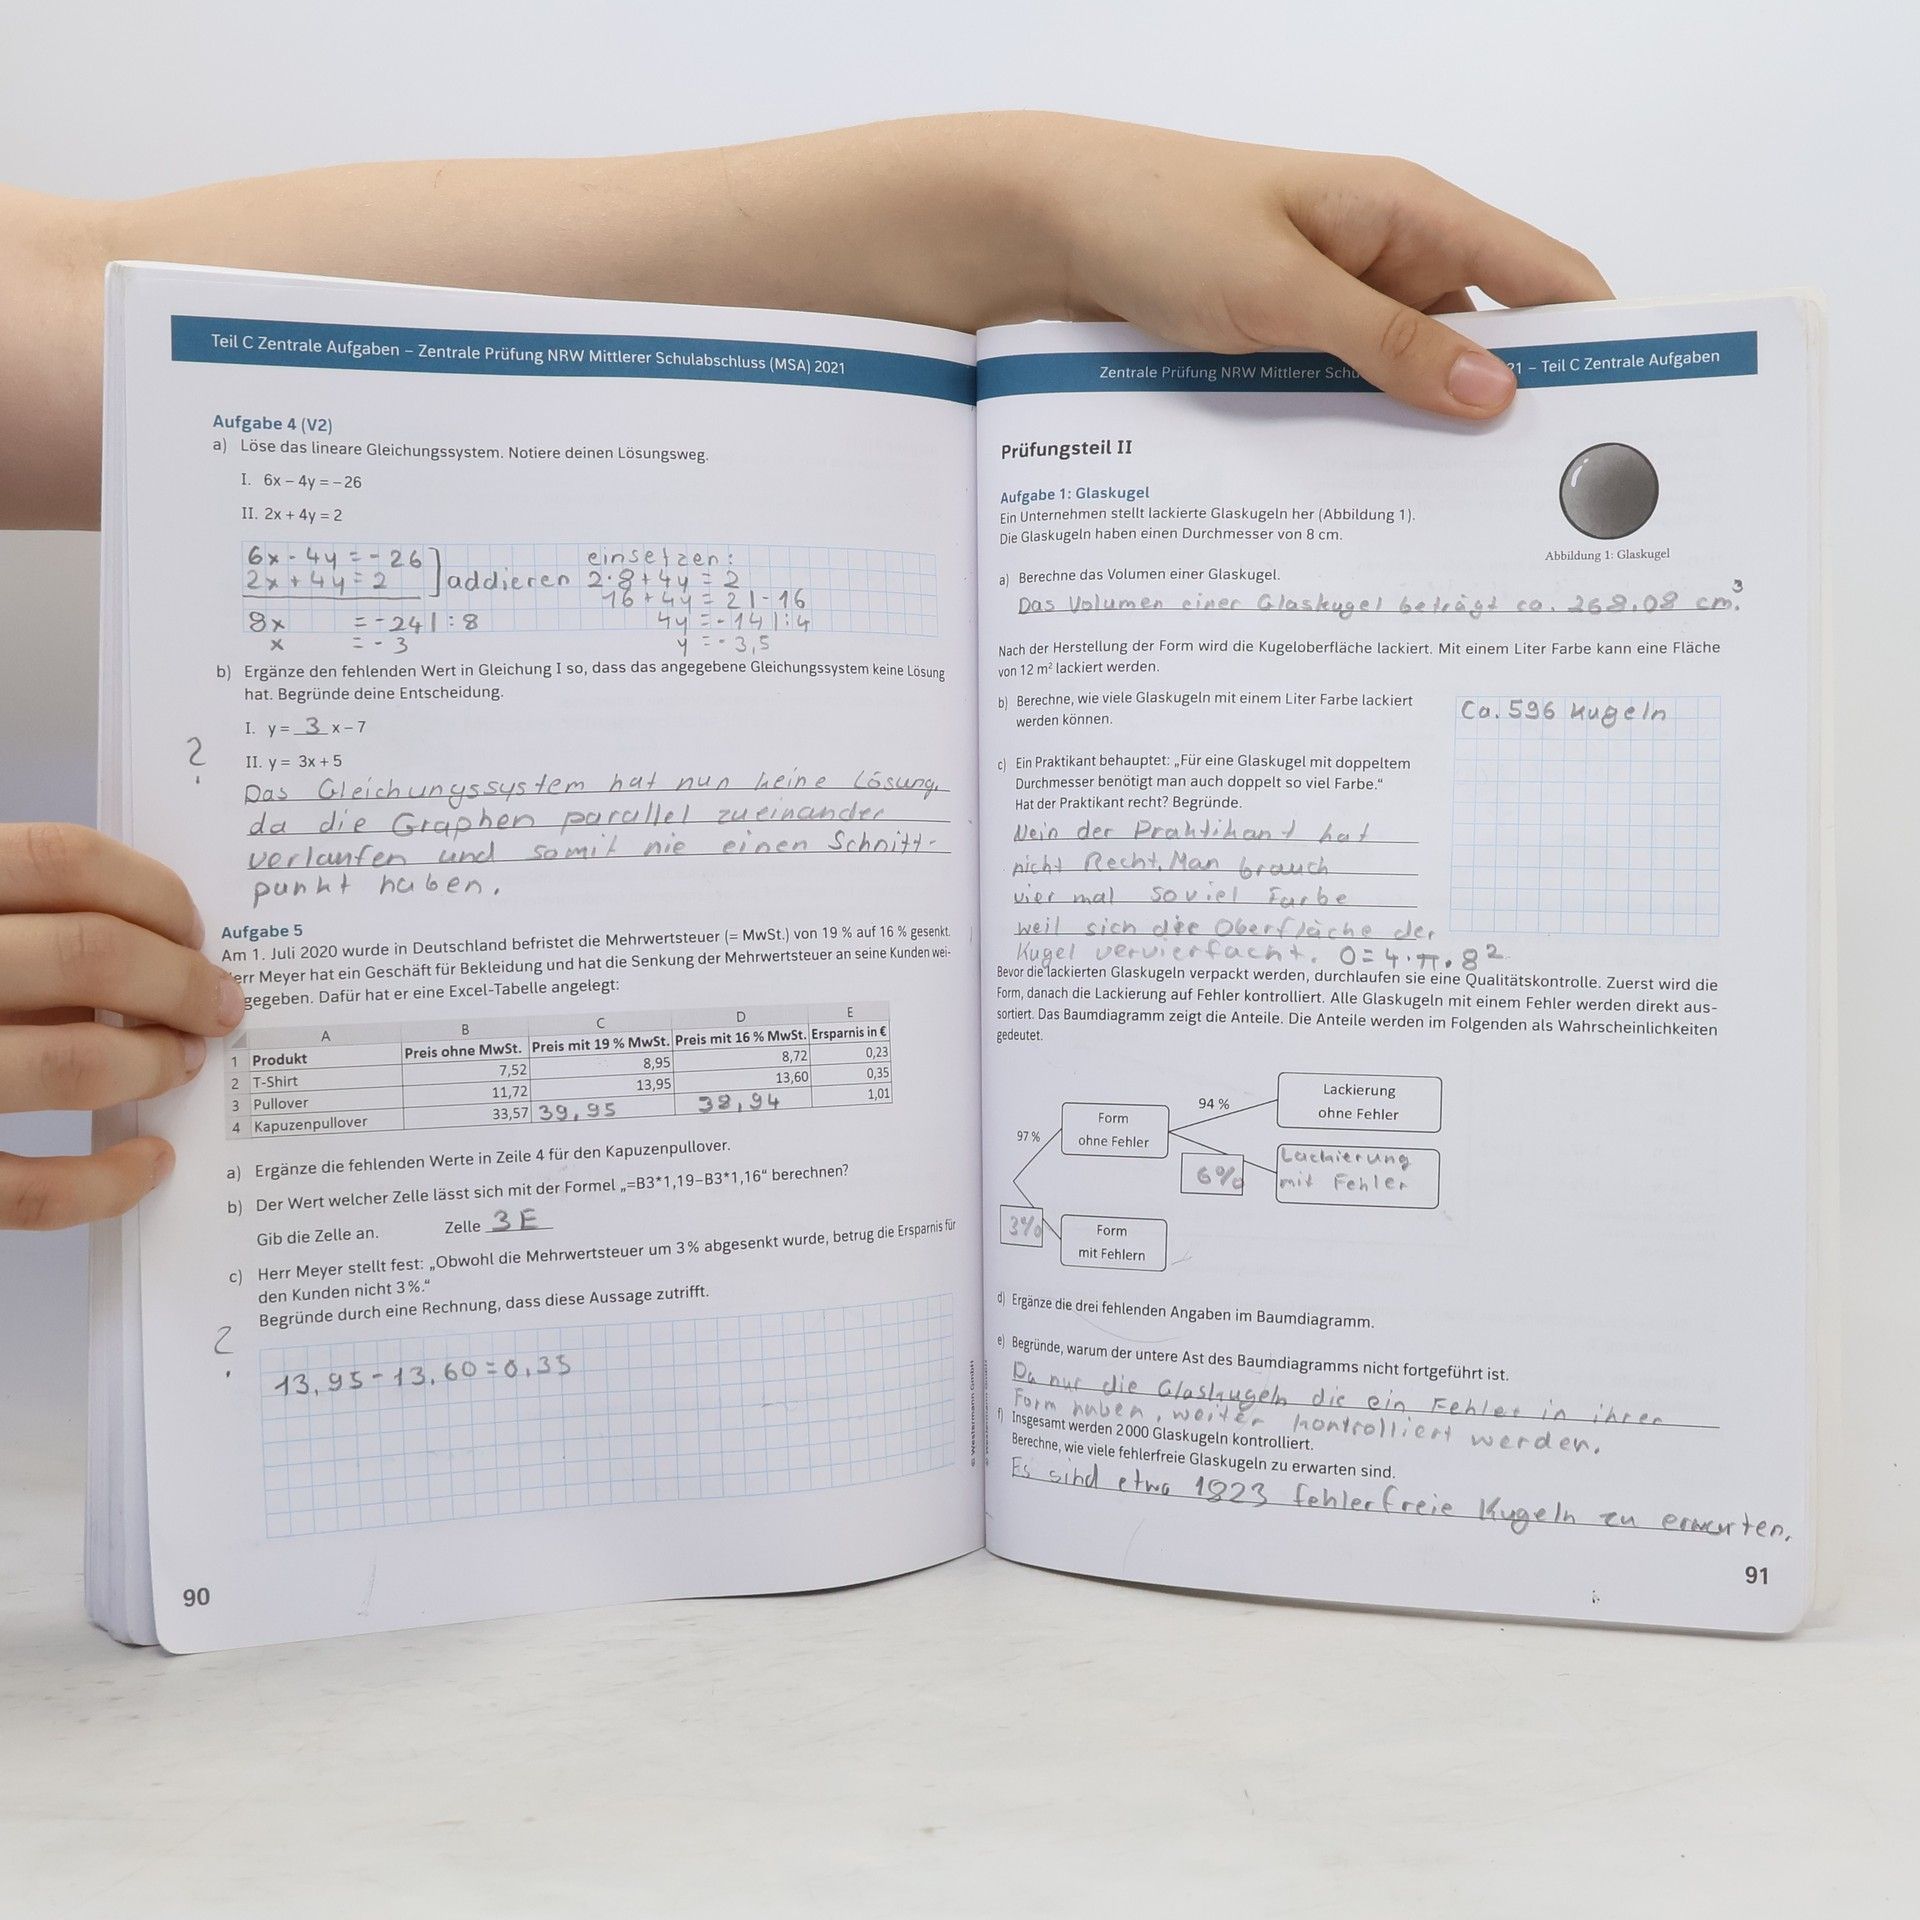 Teil C Zentrale Aufgaben – Zentrale Prüfung NRW Mittlerer Schulabschluss (MSA) 2021
Aufgabe 4 (V2)
a) Löse das lineare Gleichungssystem. Notiere deinen Lösungsweg.
I. 6x – 4y = – 26
II. 2x + 4y = 2
6x - 4y = - 26
2x + 4y = 2 ] addieren
8x = -24 | : 8
x = - 3
einsetzen:
2·8+4y = 2
16+4y = 2 | - 16
4y = -14 | : 4
y = - 3,5
b) Ergänze den fehlenden Wert in Gleichung I so, dass das angegebene Gleichungssystem keine Lösung
hat. Begründe deine Entscheidung.
I. y = 3 x – 7
?
II. y = 3x + 5
Das Gleichungssystem hat nun keine Lösung,
da die Graphen parallel zueinander
verlaufen und somit nie einen Schnitt-
punkt haben.
Aufgabe 5
Am 1. Juli 2020 wurde in Deutschland befristet die Mehrwertsteuer (= MwSt.) von 19 % auf 16 % gesenkt.
Herr Meyer hat ein Geschäft für Bekleidung und hat die Senkung der Mehrwertsteuer an seine Kunden wei-
gegeben. Dafür hat er eine Excel-Tabelle angelegt:
A B C D E
1 Produkt Preis ohne MwSt. Preis mit 19 % MwSt. Preis mit 16 % MwSt. Ersparnis in €
2 T-Shirt 7,52 8,95 8,72 0,23
3 Pullover 11,72 13,95 13,60 0,35
4 Kapuzenpullover 33,57 39,95 38,94 1,01
a) Ergänze die fehlenden Werte in Zeile 4 für den Kapuzenpullover.
b) Der Wert welcher Zelle lässt sich mit der Formel „=B3*1,19–B3*1,16“ berechnen?
Gib die Zelle an. Zelle 3E
c) Herr Meyer stellt fest: „Obwohl die Mehrwertsteuer um 3 % abgesenkt wurde, betrug die Ersparnis für
den Kunden nicht 3 %.“
Begründe durch eine Rechnung, dass diese Aussage zutrifft.
?
13,95 - 13,60 = 0,35
90
© Westermann GmbH
Zentrale Prüfung NRW Mittlerer Schu
21 – Teil C Zentrale Aufgaben
Prüfungsteil II
Aufgabe 1: Glaskugel
Ein Unternehmen stellt lackierte Glaskugeln her (Abbildung 1).
Die Glaskugeln haben einen Durchmesser von 8 cm.
Abbildung 1: Glaskugel
a) Berechne das Volumen einer Glaskugel.
Das Volumen einer Glaskugel beträgt ca. 268,08 cm³.
Nach der Herstellung der Form wird die Kugeloberfläche lackiert. Mit einem Liter Farbe kann eine Fläche
von 12 m² lackiert werden.
b) Berechne, wie viele Glaskugeln mit einem Liter Farbe lackiert
werden können.
Ca. 596 Kugeln
c) Ein Praktikant behauptet: „Für eine Glaskugel mit doppeltem
Durchmesser benötigt man auch doppelt so viel Farbe.“
Hat der Praktikant recht? Begründe.
Nein der Praktikant hat
nicht Recht. Man brauch
vier mal soviel Farbe
weil sich die Oberfläche der
Kugel vervierfacht. O=4·π·8²
Bevor die lackierten Glaskugeln verpackt werden, durchlaufen sie eine Qualitätskontrolle. Zuerst wird die
Form, danach die Lackierung auf Fehler kontrolliert. Alle Glaskugeln mit einem Fehler werden direkt aus-
sortiert. Das Baumdiagramm zeigt die Anteile. Die Anteile werden im Folgenden als Wahrscheinlichkeiten
gedeutet.
97 %
Form
ohne Fehler
94 %
Lackierung
ohne Fehler
6%
Lackierung
mit Fehler
3%
Form
mit Fehlern
d) Ergänze die drei fehlenden Angaben im Baumdiagramm.
e) Begründe, warum der untere Ast des Baumdiagramms nicht fortgeführt ist.
Da nur die Glaskugeln die ein Fehler in ihrer
Form haben, weiter kontrolliert werden.
f) Insgesamt werden 2 000 Glaskugeln kontrolliert.
Berechne, wie viele fehlerfreie Glaskugeln zu erwarten sind.
Es sind etwa 1823 fehlerfreie Kugeln zu erwarten.
91